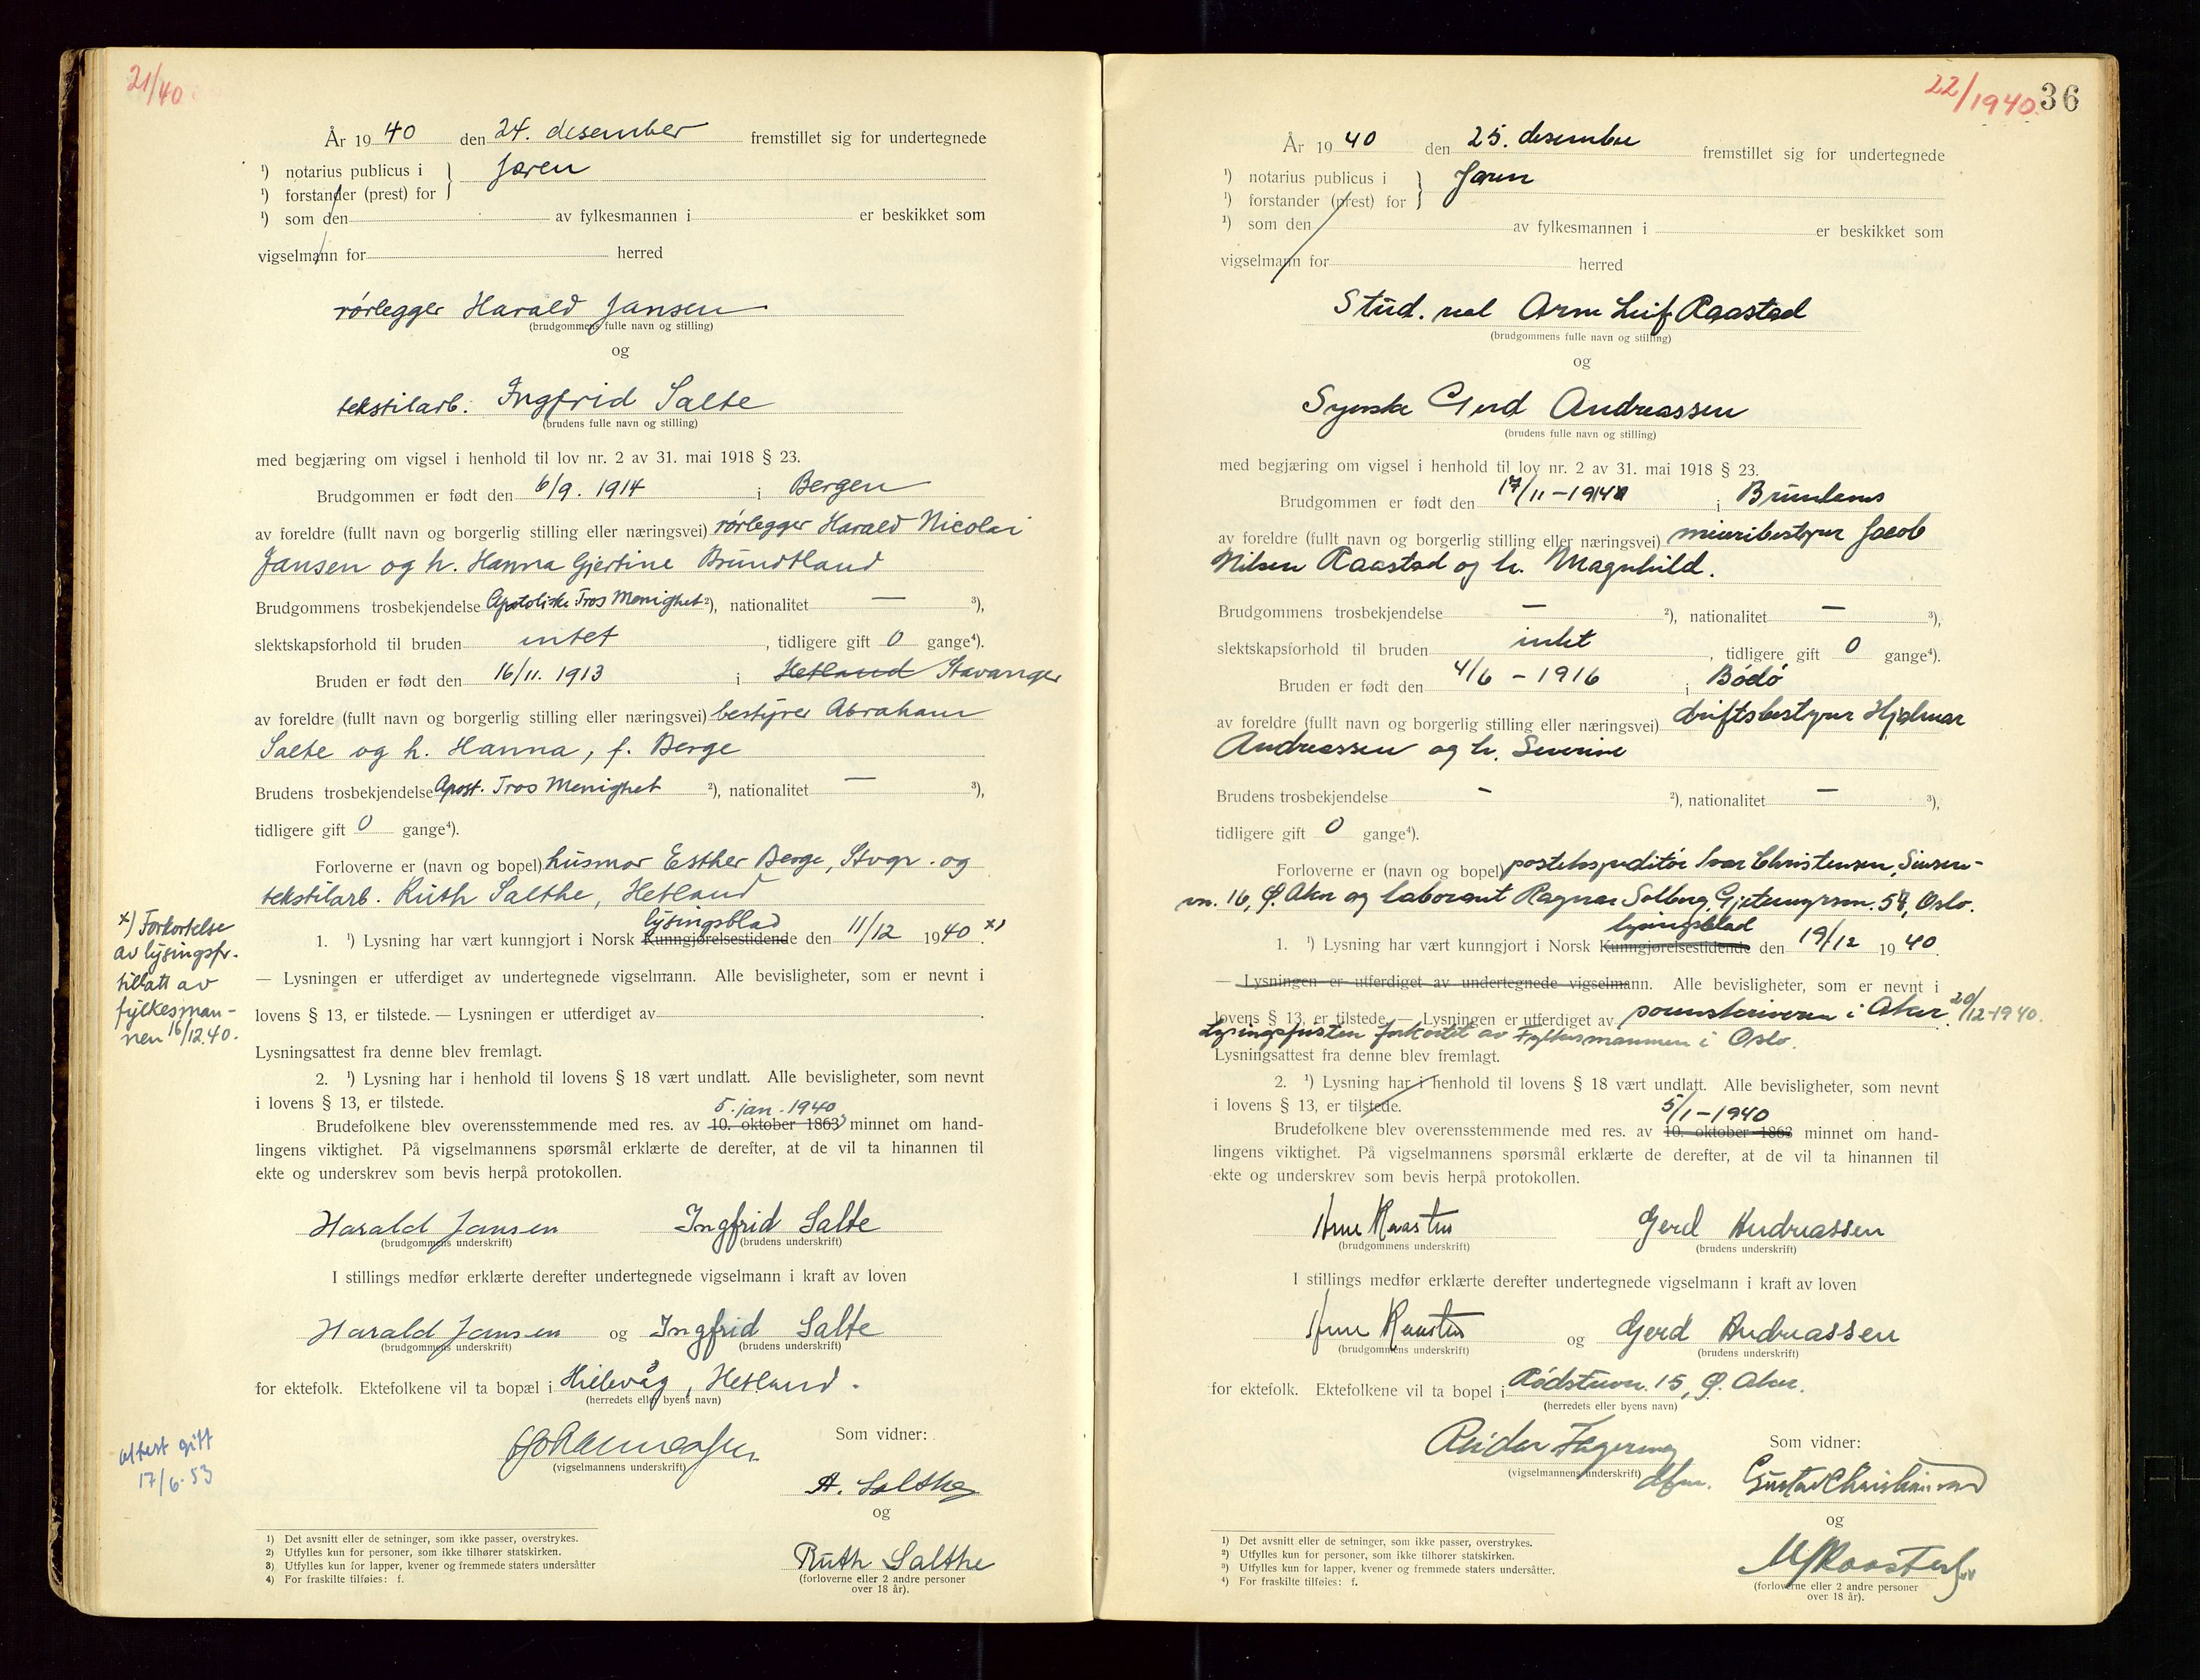 21/40
År 1940 den 24. desember fremstillet sig for undertegnede
¹) notarius publicus i } Jæren
¹) forstander (prest) for
¹) som den av fylkesmannen i er beskikket som
vigselmann for herred
rørlegger Harald Jansen
(brudgommens fulle navn og stilling)
og
tekstilarb. Ingfrid Salte
(brudens fulle navn og stilling)
med begjæring om vigsel i henhold til lov nr. 2 av 31. mai 1918 § 23.
Brudgommen er født den 6/9. 1914 i Bergen
av foreldre (fullt navn og borgerlig stilling eller næringsvei) rørlegger Harald Nicolai
Jansen og h. Hanna Gjertine Brundtland
Brudgommens trosbekjendelse Apostoliske Tros Menighet ²), nationalitet — ³),
slektskapsforhold til bruden intet, tidligere gift 0 gange⁴).
Bruden er født den 16/11. 1913 i Hetland Stavanger
av foreldre (fullt navn og borgerlig stilling eller næringsvei) bestyrer Abraham
Salte og h. Hanna, f. Berge
Brudens trosbekjendelse Apost. Tros Menighet ²), nationalitet — ³),
tidligere gift 0 gange⁴).
Forloverne er (navn og bopel) husmor Esther Berge, Stvgr. og
tekstilarb. Ruth Salthe, Hetland
lysingsblad
1. ¹) Lysning har vært kunngjort i Norsk Kunngjørelsestidende den 11/12 1940. x)
— Lysningen er utferdiget av undertegnede vigselmann. Alle bevisligheter, som er nevnt i
lovens § 13, er tilstede. — Lysningen er utferdiget av
Lysningsattest fra denne blev fremlagt.
x) Forkortelse
av lysingsfr.
tillatt av
fylkesman-
nen 16/12.40.
2. ¹) Lysning har i henhold til lovens § 18 vært undlatt. Alle bevisligheter, som nevnt
i lovens § 13, er tilstede.
5. jan. 1940
Brudefolkene blev overensstemmende med res. av 10. oktober 1863 minnet om hand-
lingens viktighet. På vigselmannens spørsmål erklærte de derefter, at de vil ta hinannen til
ekte og underskrev som bevis herpå protokollen.
Harald Jansen Ingfrid Salte
(brudgommens underskrift) (brudens underskrift)
I stillings medfør erklærte derefter undertegnede vigselmann i kraft av loven
Harald Jansen og Ingfrid Salte
(brudgommens underskrift) (brudens underskrift)
for ektefolk. Ektefolkene vil ta bopæl i Hillevåg, Hetland.
(herredets eller byens navn)
(vigselmannens underskrift)
Som vidner:
A. Salthe
og
Ruth Salthe
(forloverne eller 2 andre personer
over 18 år).
attest gitt
17/6.53
1) Det avsnitt eller de setninger, som ikke passer, overstrykes.
2) Utfylles kun for personer, som ikke tilhører statskirken.
3) Utfylles kun for lapper, kvener og fremmede staters undersåtter
4) For fraskilte tilføies: f.
22/1940 36
År 1940 den 25. desember fremstillet sig for undertegnede
¹) notarius publicus i } Jæren
¹) forstander (prest) for
¹) som den av fylkesmannen i er beskikket som
vigselmann for herred
Stud. real Arne Leif Raastad
(brudgommens fulle navn og stilling)
og
Syerske Gerd Andreassen
(brudens fulle navn og stilling)
med begjæring om vigsel i henhold til lov nr. 2 av 31. mai 1918 § 23.
Brudgommen er født den 17/11 - 1914 i Brunlanes
av foreldre (fullt navn og borgerlig stilling eller næringsvei) meieribestyrer Jacob
Nilsen Raastad og h. Magnhild.
Brudgommens trosbekjendelse — ²), nationalitet — ³),
slektskapsforhold til bruden intet, tidligere gift 0 gange⁴).
Bruden er født den 4/6 - 1916 i Bodø
av foreldre (fullt navn og borgerlig stilling eller næringsvei) driftsbestyrer Hjalmar
Andreassen og h. Severine
Brudens trosbekjendelse - ²), nationalitet — ³),
tidligere gift 0 gange⁴).
Forloverne er (navn og bopel) postekspeditør Ivar Christensen, Sinsen-
vn. 16, Ø. Aker og laborant Ragnar Solberg, Gjetemyrsvn. 58, Oslo.
lysingsblad
1. ¹) Lysning har vært kunngjort i Norsk Kunngjørelsestidende den 19/12 1940.
— Lysningen er utferdiget av undertegnede vigselmann. Alle bevisligheter, som er nevnt i
lovens § 13, er tilstede. — Lysningen er utferdiget av sorenskriveren i Aker 20/12-1940.
Lysingsfristen forkortet av Fylkesmannen i Oslo.
Lysningsattest fra denne blev fremlagt.
2. ¹) Lysning har i henhold til lovens § 18 vært undlatt. Alle bevisligheter, som nevnt
i lovens § 13, er tilstede.
5/1 - 1940
Brudefolkene blev overensstemmende med res. av 10. oktober 1863 minnet om hand-
lingens viktighet. På vigselmannens spørsmål erklærte de derefter, at de vil ta hinannen til
ekte og underskrev som bevis herpå protokollen.
Arne Raastad Gerd Andreassen
(brudgommens underskrift) (brudens underskrift)
I stillings medfør erklærte derefter undertegnede vigselmann i kraft av loven
Arne Raastad og Gerd Andreassen
(brudgommens underskrift) (brudens underskrift)
for ektefolk. Ektefolkene vil ta bopel i Rødstuvn. 15, Ø. Aker.
(herredets eller byens navn)
Reidar
(vigselmannens underskrift)
Som vidner:
Gustav
og
(forloverne eller 2 andre personer
over 18 år).
1) Det avsnitt eller de setninger, som ikke passer, overstrykes.
2) Utfylles kun for personer, som ikke tilhører statskirken.
3) Utfylles kun for lapper, kvener og fremmede staters undersåtter.
4) For fraskilte tilføies: f.